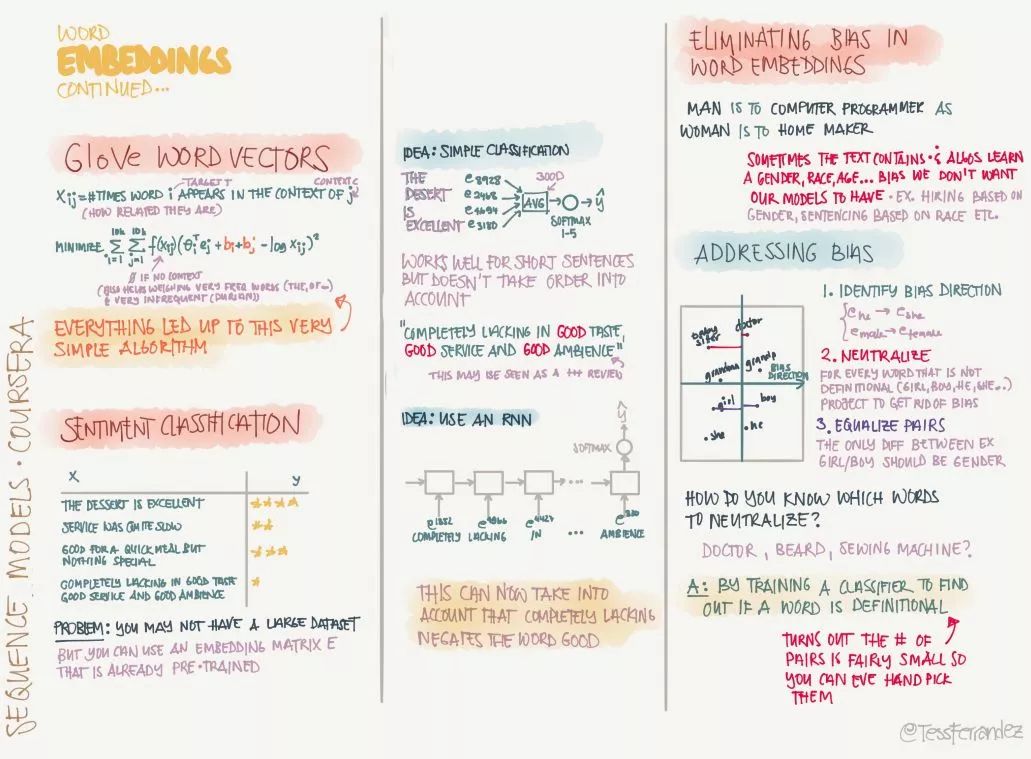 WORD
EMBEDDINGS
CONTINUED...
GloVe WORD VECTORS
TARGET T
CONTEXT C
Xij = # TIMES WORD i APPEARS IN THE CONTEXT OF j
(HOW RELATED THEY ARE)
MINIMIZE Σ(i=1..10k) Σ(j=1..10k) f(Xij)(θiᵀej + bi + bj - log Xij)²
IF NO CONTEXT
(ALSO HELPS WEIGHING VERY FREQ WORDS (THE, OF...)
& VERY INFREQUENT (DURIAN))
EVERYTHING LED UP TO THIS VERY
SIMPLE ALGORITHM
SENTIMENT CLASSIFICATION
X y
THE DESSERT IS EXCELLENT ★★★★
SERVICE WAS QUITE SLOW ★★
GOOD FOR A QUICK MEAL BUT
NOTHING SPECIAL ★★★
COMPLETELY LACKING IN GOOD TASTE
GOOD SERVICE AND GOOD AMBIENCE ★
PROBLEM: YOU MAY NOT HAVE A LARGE DATASET
BUT YOU CAN USE AN EMBEDDING MATRIX E
THAT IS ALREADY PRE-TRAINED
SEQUENCE MODELS · COURSERA
IDEA: SIMPLE CLASSIFICATION
THE e8928
DESERT e2468
IS e4694
EXCELLENT e3180
300D
AVG
ŷ
SOFTMAX
1-5
WORKS WELL FOR SHORT SENTENCES
BUT DOESN'T TAKE ORDER INTO
ACCOUNT
"COMPLETELY LACKING IN GOOD TASTE,
GOOD SERVICE AND GOOD AMBIENCE"
THIS MAY BE SEEN AS A +++ REVIEW
IDEA: USE AN RNN
ŷ
SOFTMAX
...
e1852 e4966 e4427 e330
COMPLETELY LACKING IN ... AMBIENCE
THIS CAN NOW TAKE INTO
ACCOUNT THAT COMPLETELY LACKING
NEGATES THE WORD GOOD
ELIMINATING BIAS IN
WORD EMBEDDINGS
MAN IS TO COMPUTER PROGRAMMER AS
WOMAN IS TO HOME MAKER
SOMETIMES THE TEXT CONTAINS · & ALGOS LEARN
A GENDER, RACE, AGE... BIAS WE DON'T WANT
OUR MODELS TO HAVE · EX. HIRING BASED ON
GENDER, SENTENCING BASED ON RACE ETC.
ADDRESSING BIAS
baby
sitter
doctor
grandma
grandp
BIAS
DIRECTION
girl
boy
she
he
1. IDENTIFY BIAS DIRECTION
{ ehe → eshe
emale → efemale
2. NEUTRALIZE
FOR EVERY WORD THAT IS NOT
DEFINITIONAL (GIRL, BOY, HE, SHE...)
PROJECT TO GET RID OF BIAS
3. EQUALIZE PAIRS
THE ONLY DIFF BETWEEN EX
GIRL/BOY SHOULD BE GENDER
HOW DO YOU KNOW WHICH WORDS
TO NEUTRALIZE?
DOCTOR, BEARD, SEWING MACHINE?
A: BY TRAINING A CLASSIFIER TO FIND
OUT IF A WORD IS DEFINITIONAL
TURNS OUT THE # OF
PAIRS IS FAIRLY SMALL SO
YOU CAN EVE HAND PICK
THEM
@TessFerrandez